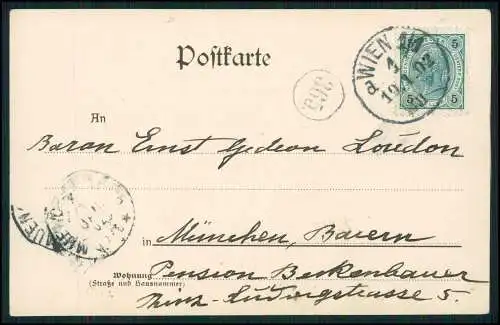 Postkarte
WIEN
5 5
An
Baron Ernst Gedeon Loudon
in München, Baiern
Wohnung Pension Beckenbauer
(Straße und Hausnummer)
Prinz-Ludwigstrasse 5.